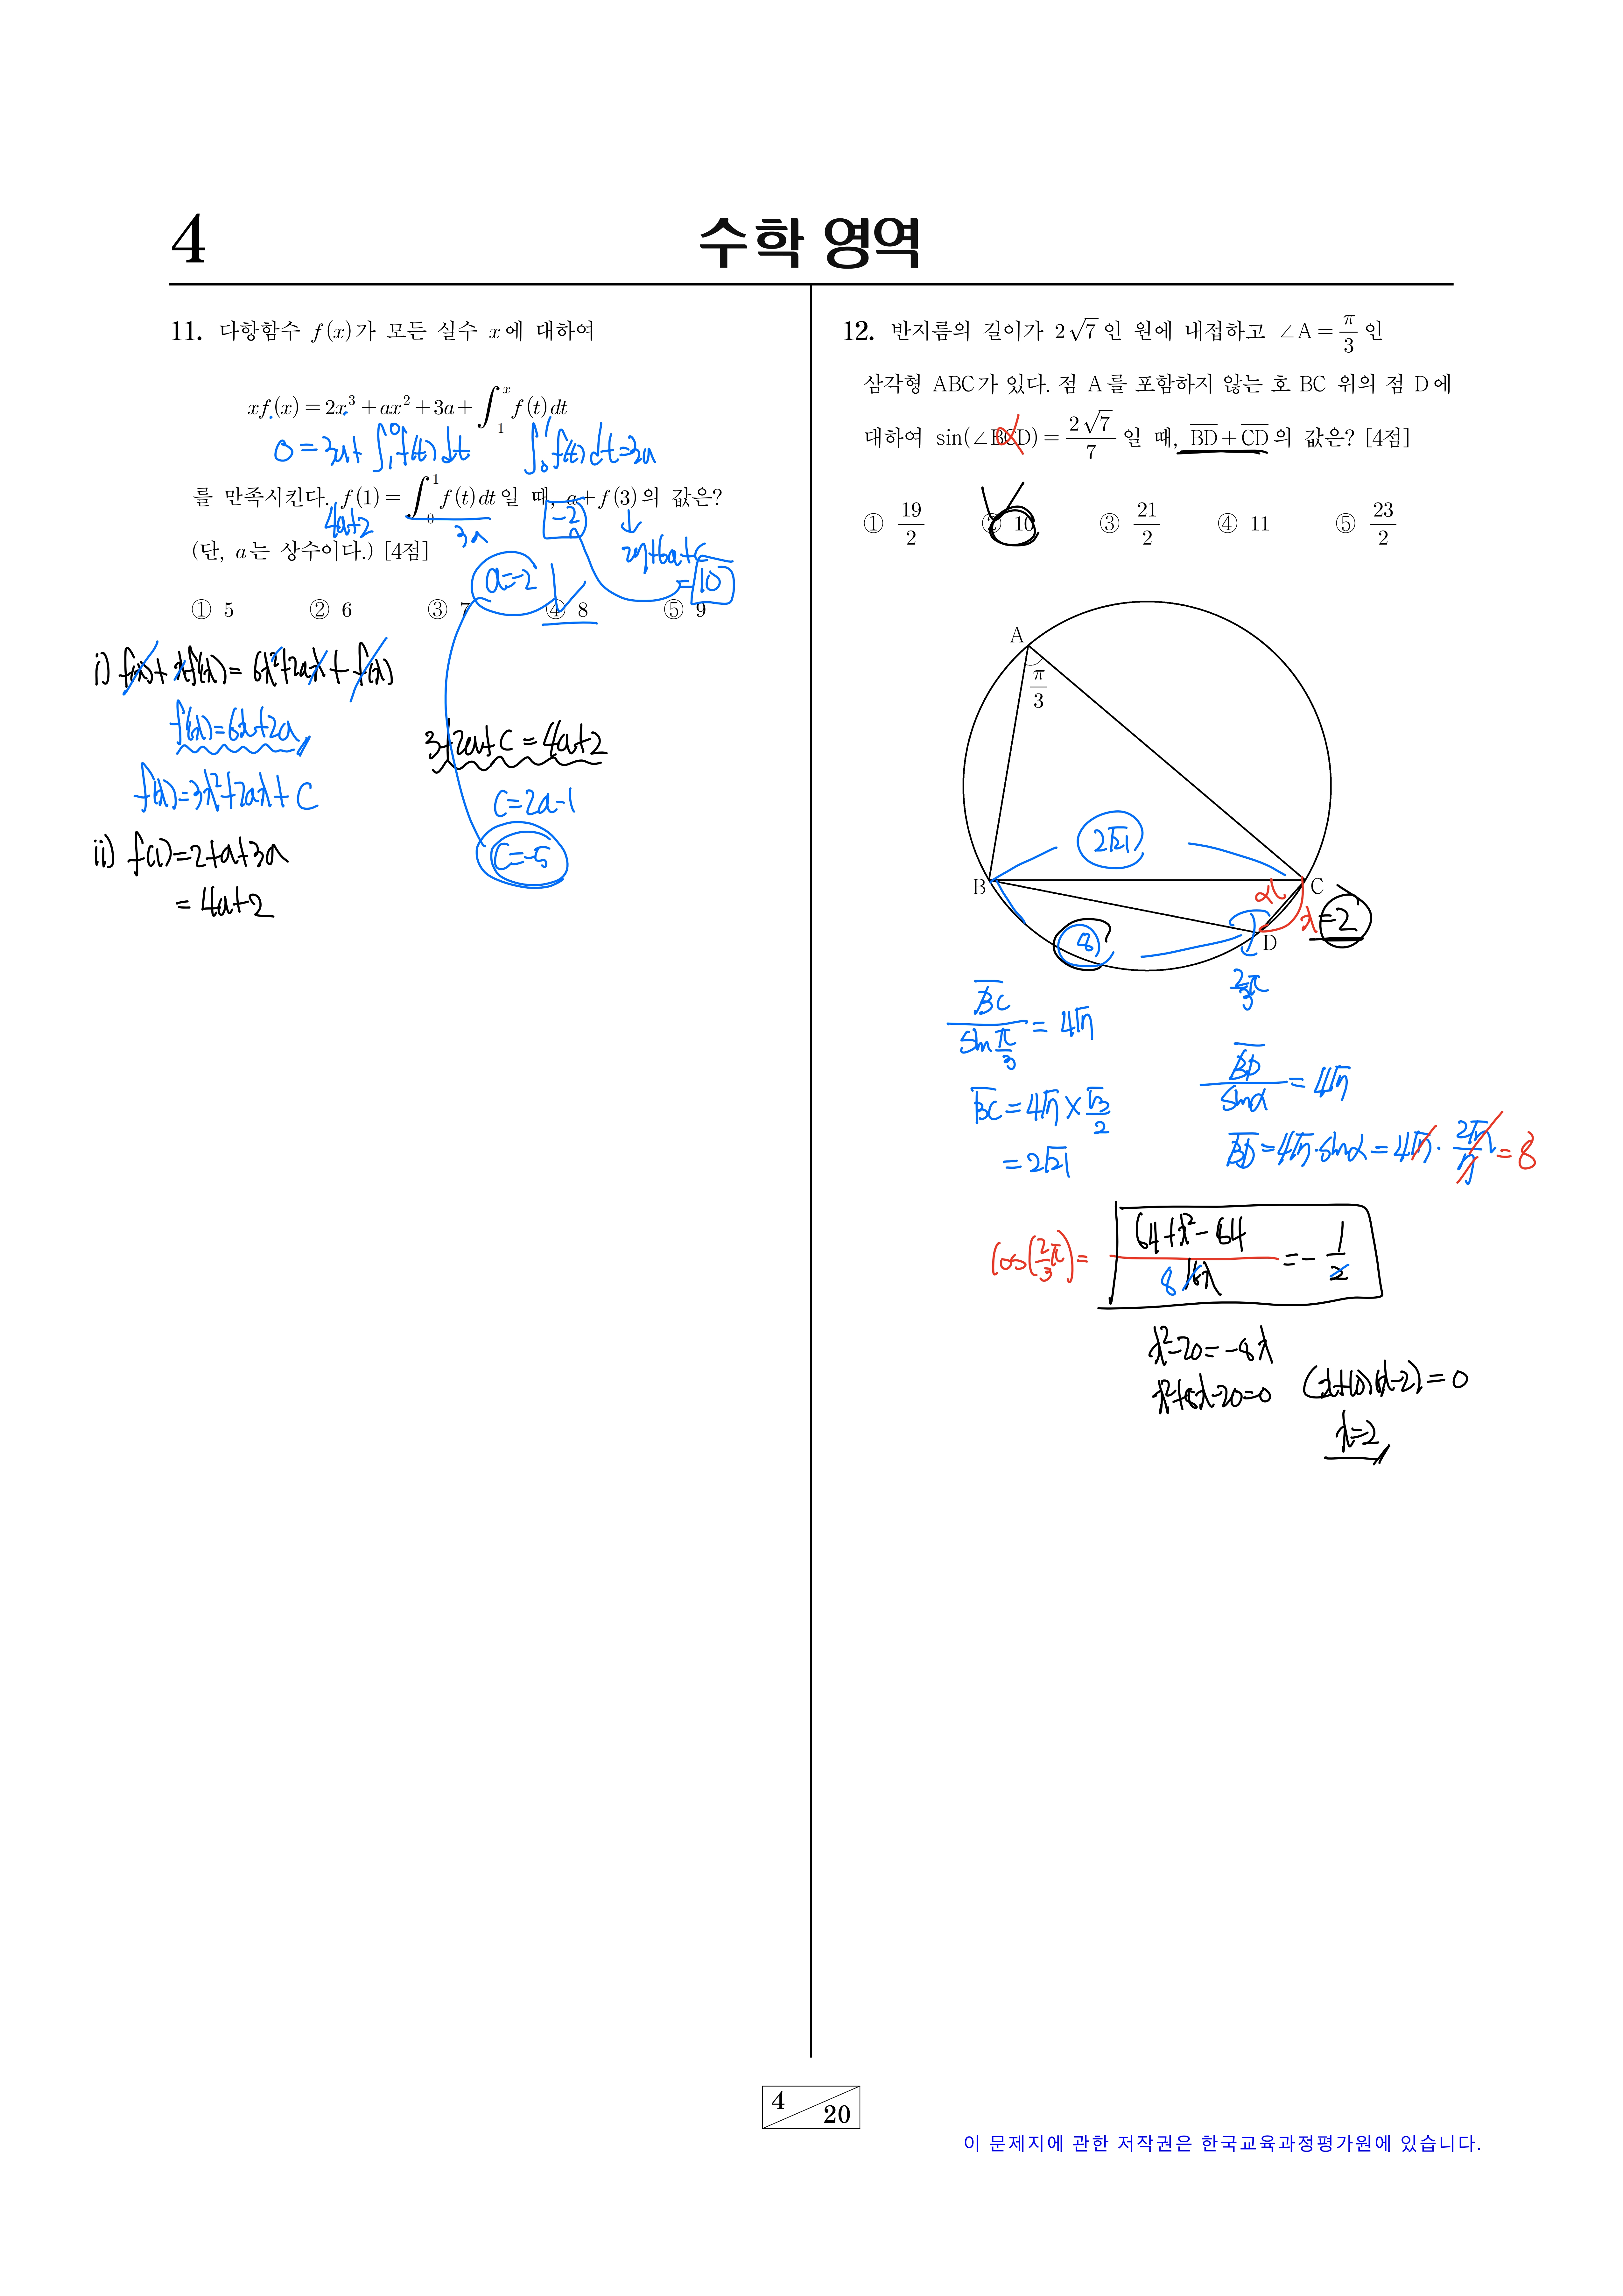 4
수학 영역
11. 다항함수 f(x)가 모든 실수 x에 대하여
xf(x) = 2x³ + ax² + 3a + ∫₁ˣ f(t)dt
0 = 3a + ∫₁⁰ f(t)dt
∫₀¹ f(t)dt = 3a
를 만족시킨다. f(1) = ∫₀¹ f(t)dt 일 때, a + f(3)의 값은?
4a+2
3a
-2
(단, a는 상수이다.) [4점]
27+6a+c
= 10
a=-2
① 5 ② 6 ③ 7 ④ 8 ⑤ 9
i) f(x) + xf'(x) = 6x²+2ax + f(x)
f'(x)=6x+2a
f(x)=3x²+2ax+C
ii) f(1)=2+a+3a
= 4a+2
3+2a+C = 4a+2
C=2a-1
C=-5
12. 반지름의 길이가 2√7 인 원에 내접하고 ∠A = π/3 인
삼각형 ABC가 있다. 점 A를 포함하지 않는 호 BC 위의 점 D에
대하여 sin(∠BCD) = 2√7/7 일 때, BD + CD의 값은? [4점]
α
① 19/2 ② 10 ③ 21/2 ④ 11 ⑤ 23/2
A
π/3
2√21
B
C
α
x=2
8
D
2/3π
BC/sin π/3 = 4√7
BC = 4√7 × √3/2
= 2√21
BD/sinα = 4√7
BD = 4√7·sinα = 4√7 · 2√7/7 = 8
cos(2/3π) = (64+x²-84)/16x = -1/2
8
x²-20=-8x
x²+8x-20=0
(x+10)(x-2)=0
x=2
4
20
이 문제지에 관한 저작권은 한국교육과정평가원에 있습니다.